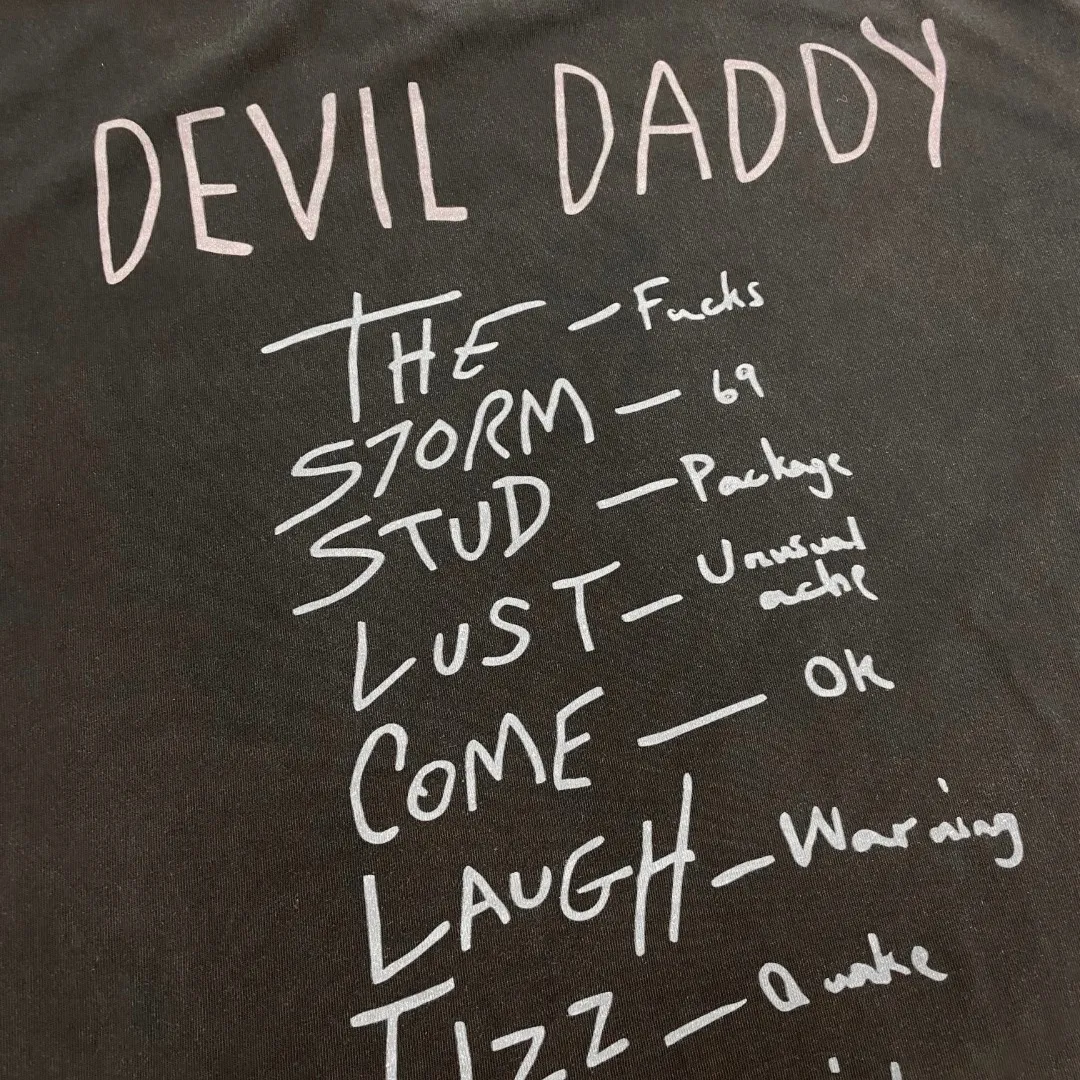 DEVIL DADDY
THE – Fucks
STORM – 69
STUD – Package
LUST – Unusual
ache
COME – OK
LAUGH – Warning
TIZZ – Quake